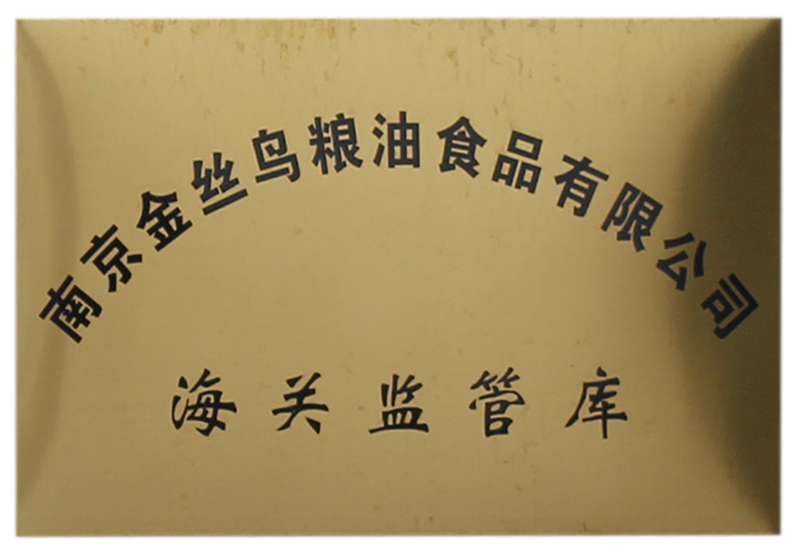 南京金丝鸟粮油食品有限公司
海关监管库